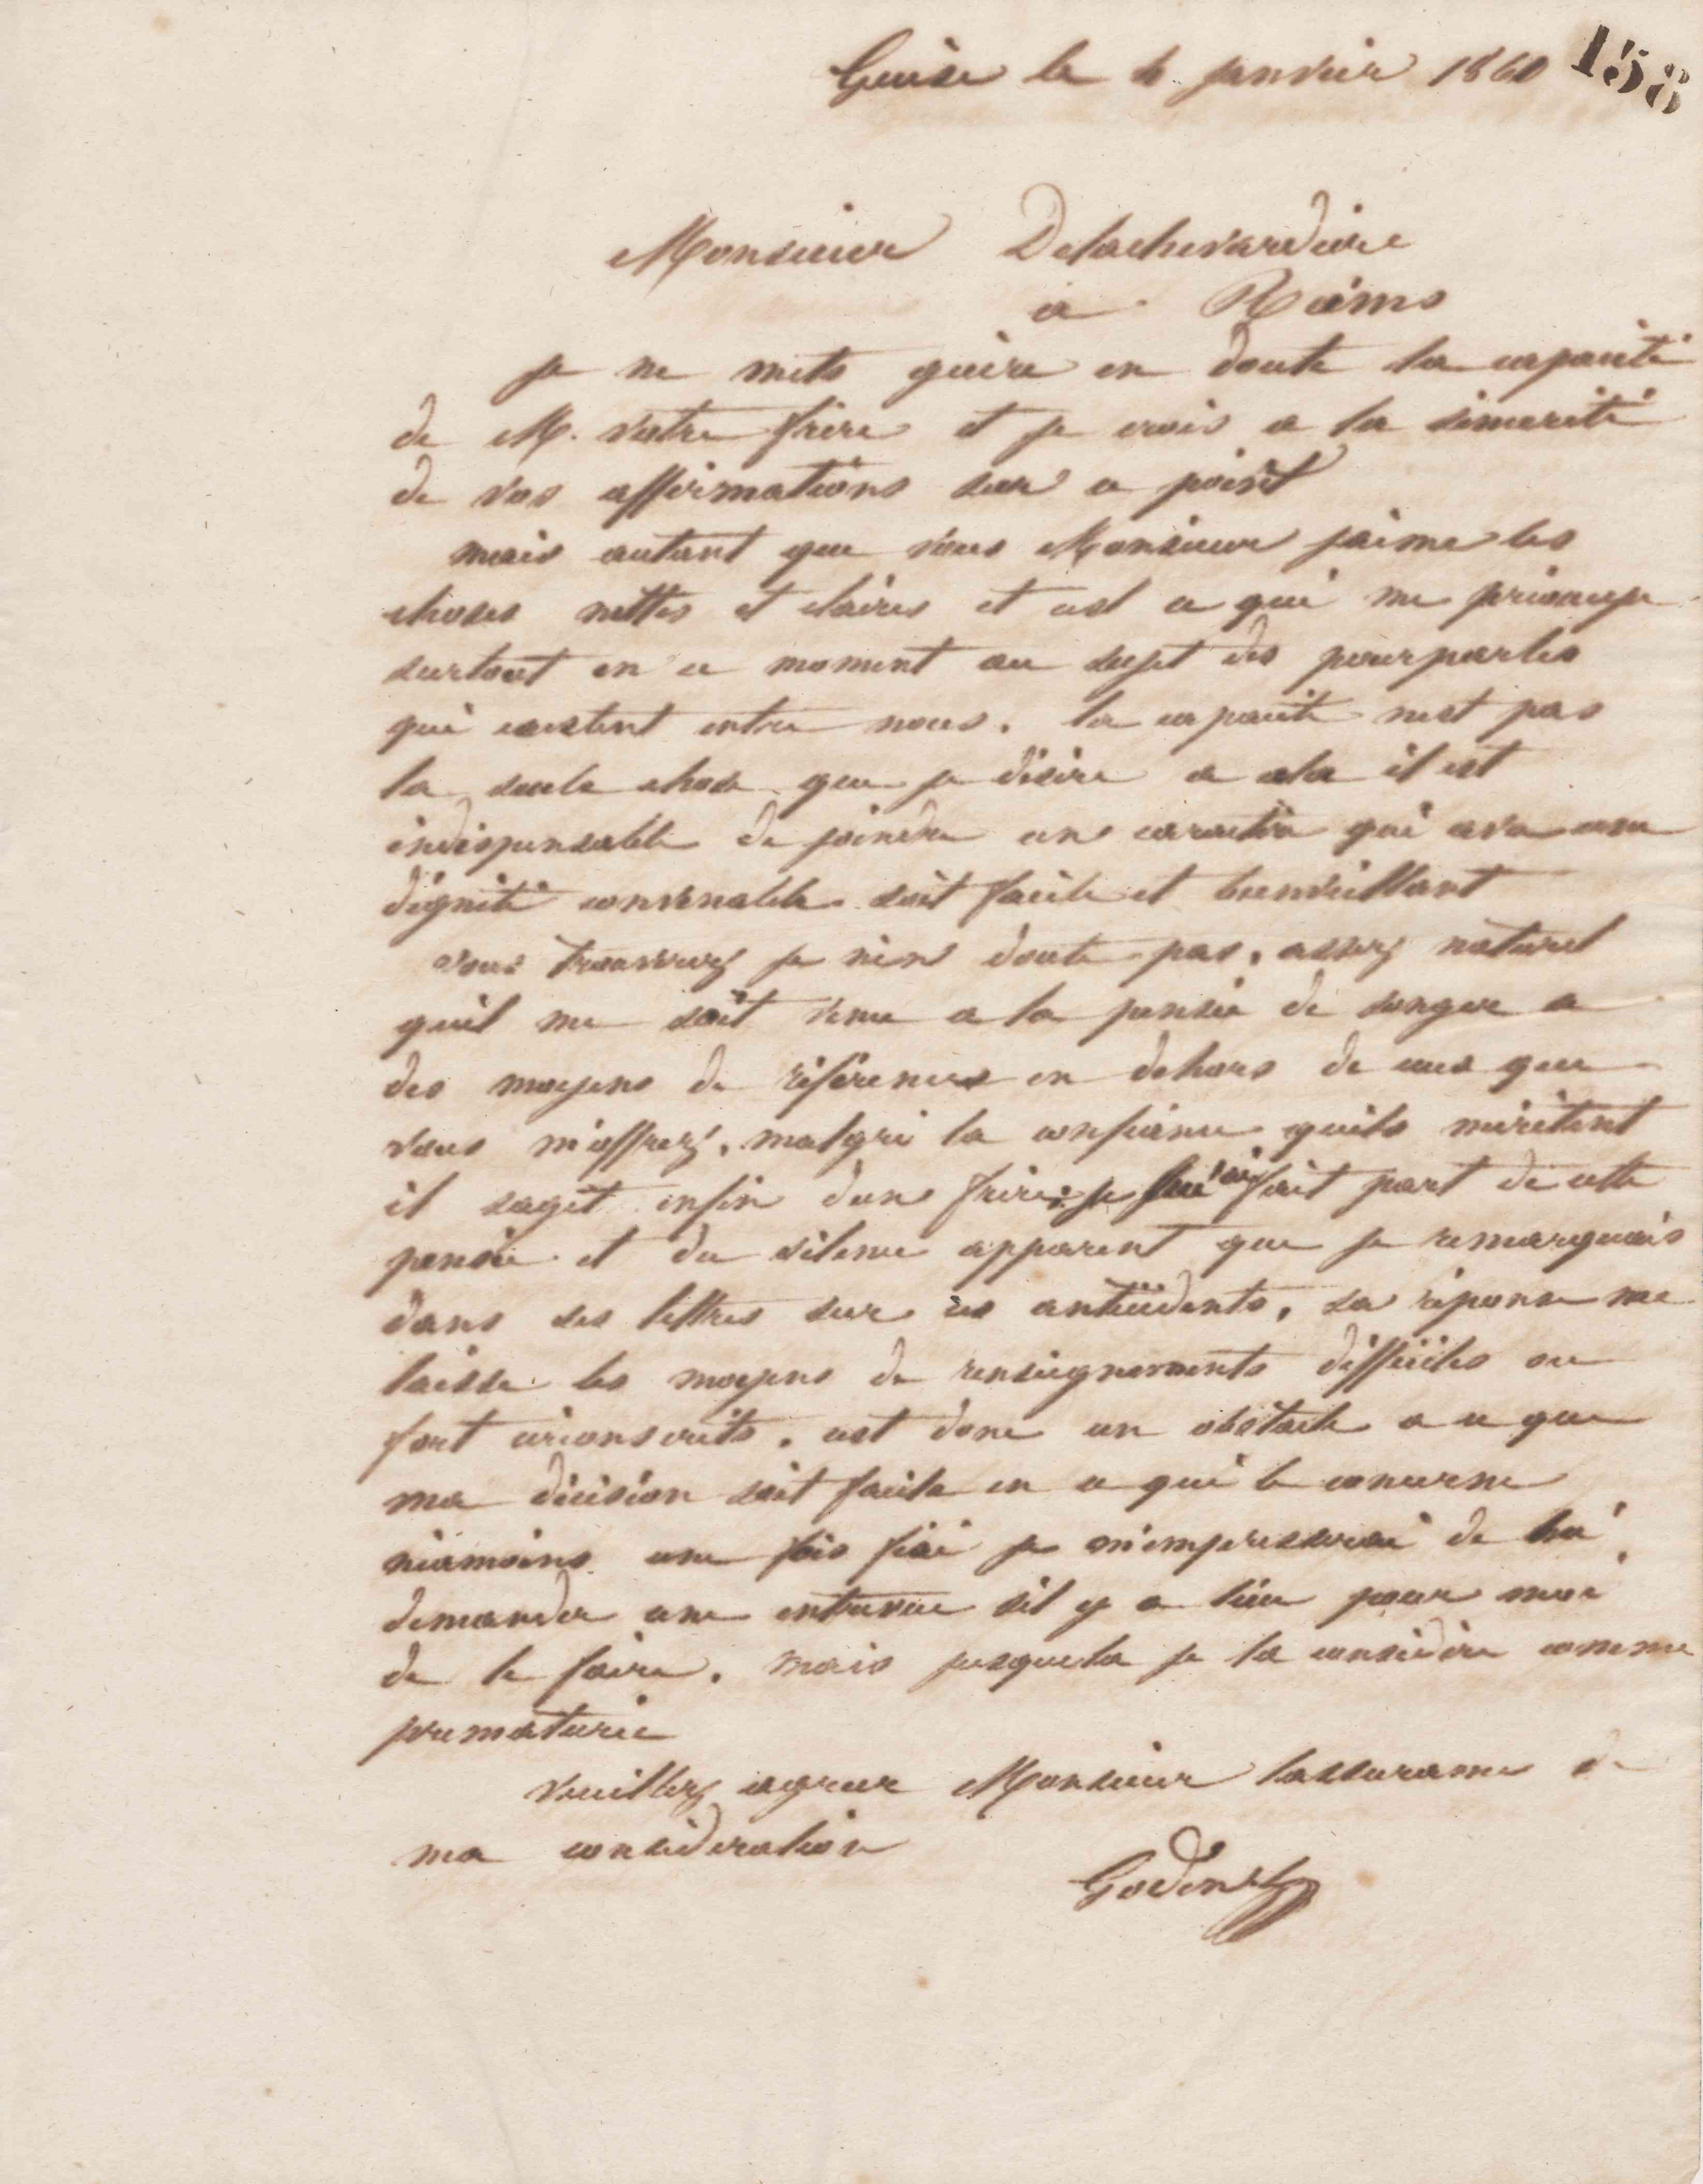 Guise le 4 janvier 1860
158
Monsieur Delachevardière
a Reims
je ne mets guère en doute la capacité
de M. votre frère et je crois a la sincérité
de vos affirmations sur ce point
mais autant que vous Monsieur jaime les
choses nettes et claires et cest ce qui me préoccupe
surtout en ce moment au sujet des pourparlés
qui existent entre nous. la capacité nest pas
la seule chose que je désire a cela il est
indispensable de joindre un caractère qui avec une
dignité convenable soit facile et bienveillant
vous trouverez je nen doute pas, assez naturel
quil me soit venu a la pensée de songer a
des moyens de références en dehors de ceux que
vous m'offrez, malgré la confiance quils méritent
il sagit enfin dun frère; je lui ai fait part de cette
pensée et du silence apparent que je remarquais
dans ses lettres sur ses antécédents, sa réponse me
laisse les moyens de renseignements difficiles ou
fort circonscrits, cest donc un obstacle a ce que
ma décision soit facile en ce qui le concerne
néamoins une fois fixé je m'empresserai de lui
demander une entrevue sil y a lieu pour moi
de le faire. mais jusquela je la considère comme
prematurée
veuillez agreer Monsieur lassurance de
ma consideration
Godin